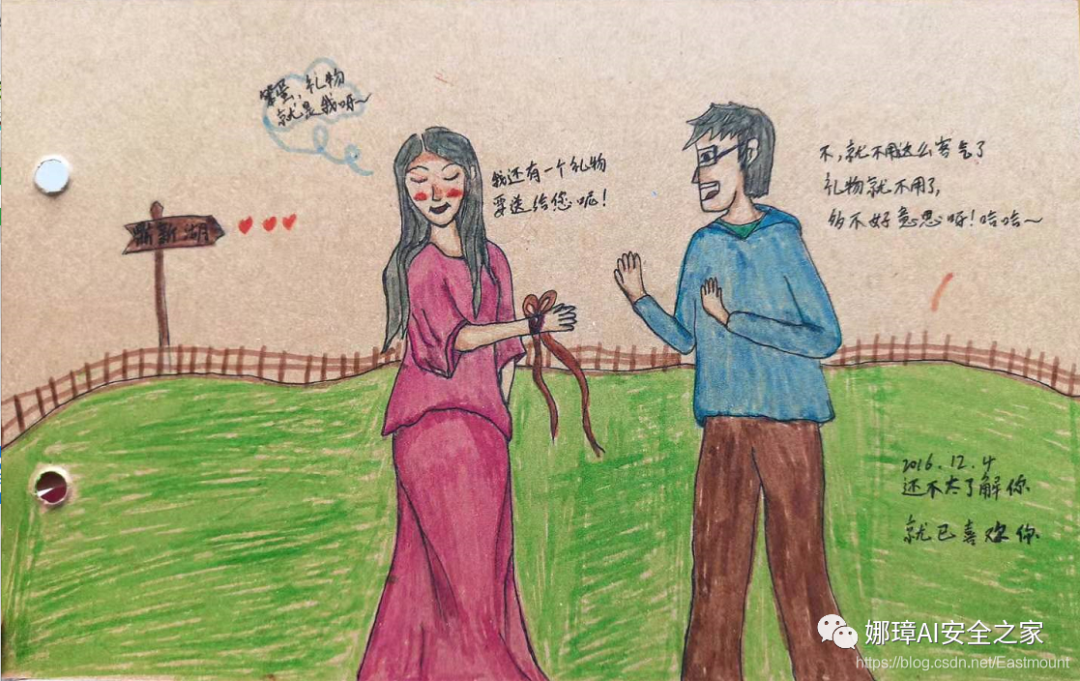 笨蛋，礼物
就是我呀~
我还有一个礼物
要送给您呢！
不，就不用这么客气了
礼物就不用了，
多不好意思呀！哈哈~
鼎新湖
2016.12.4
还不太了解你
就已喜欢你
娜璋AI安全之家
https://blog.csdn.net/Eastmount